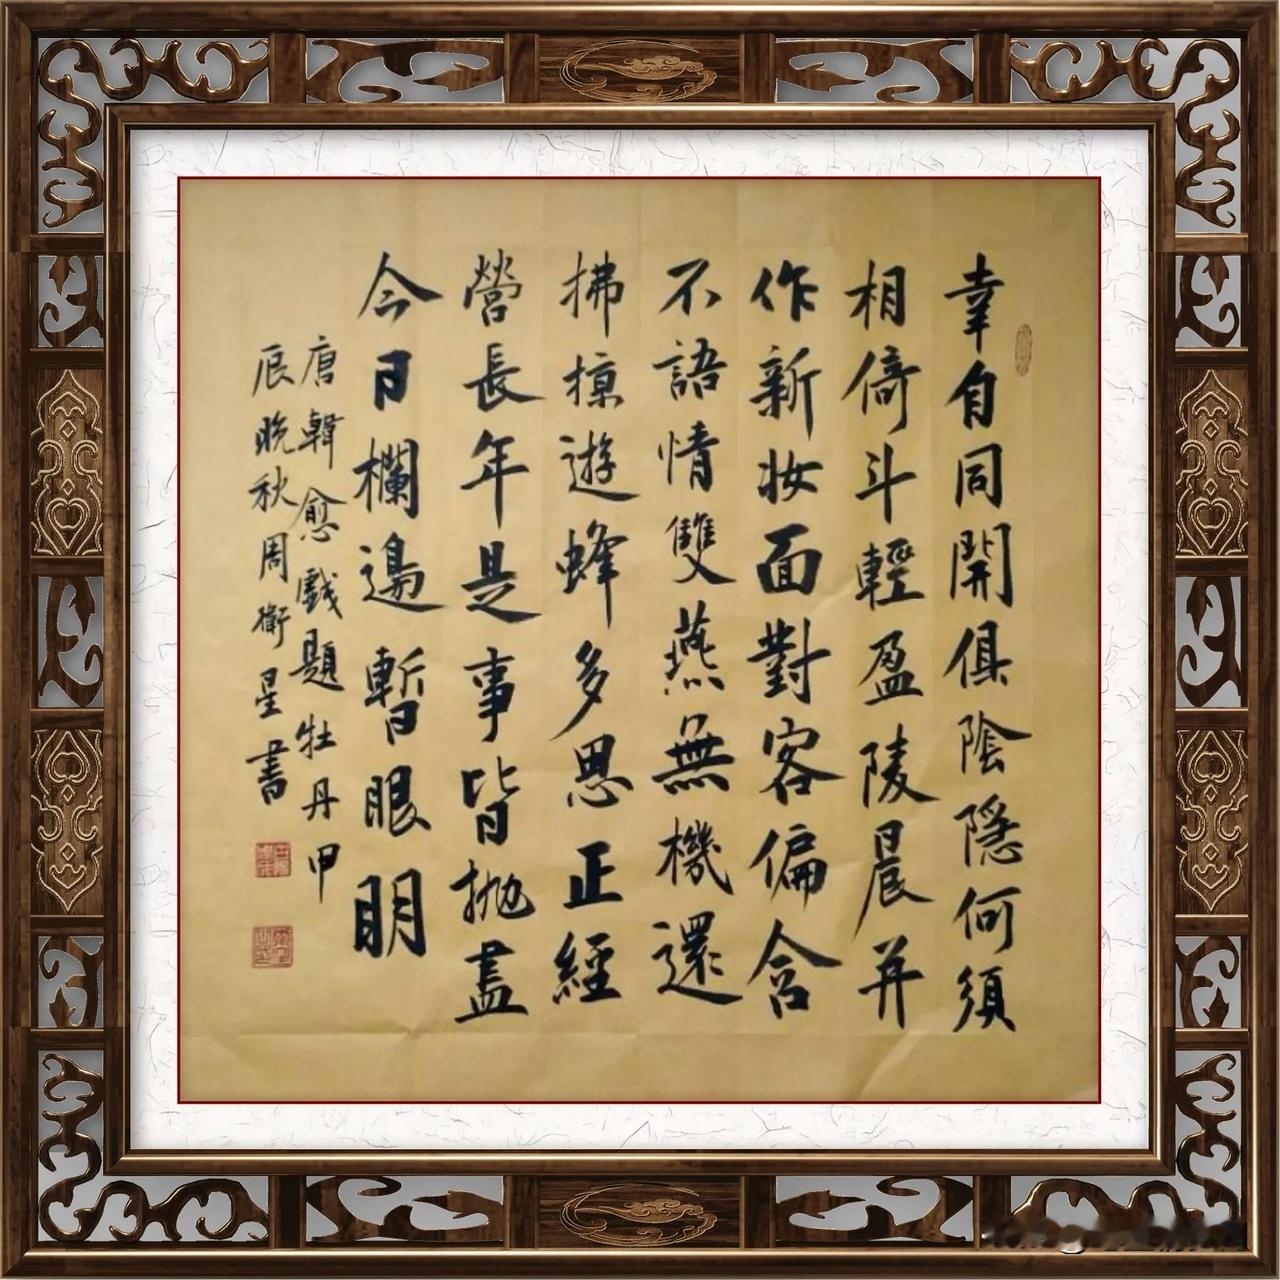 幸自同開俱陰隱何須
相倚斗輕盈陵晨并
作新妝面對客偏含
不語情雙燕無機還
拂掠遊蜂多思正經
營長年是事皆抛盡
今日欄邊暫眼明
唐韓愈戲題牡丹甲
辰晚秋周衛星書